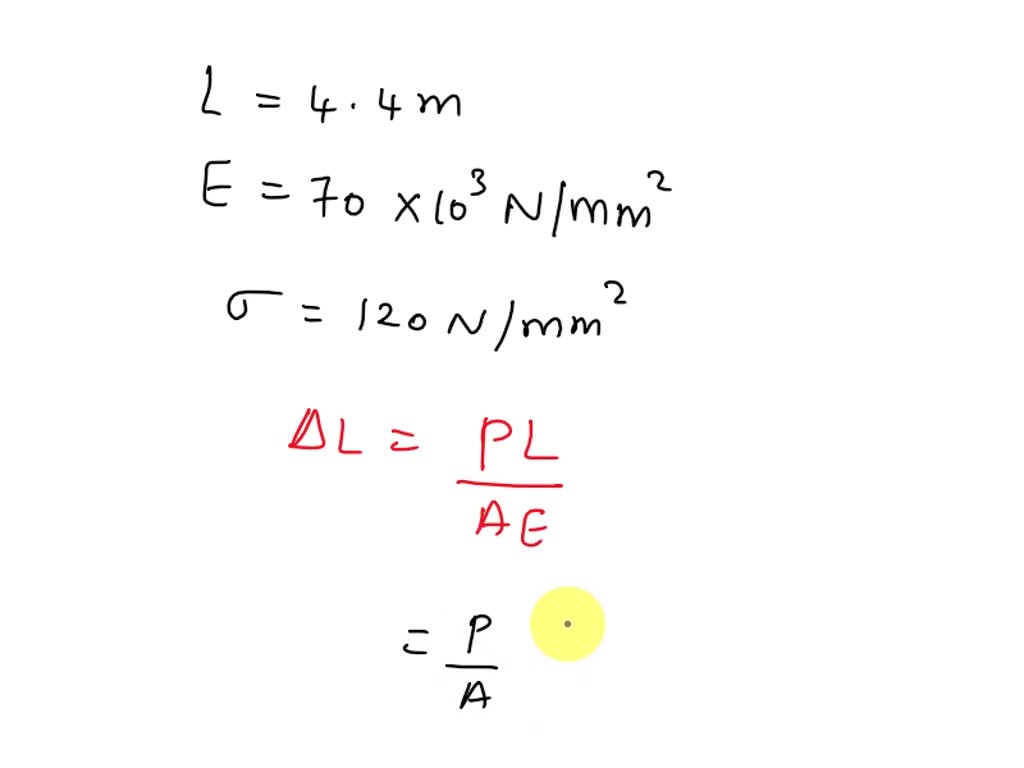 L = 4.4m
E = 70 ×10³ N/mm²
σ = 120 N/mm²
ΔL = PL/AE
= P/A